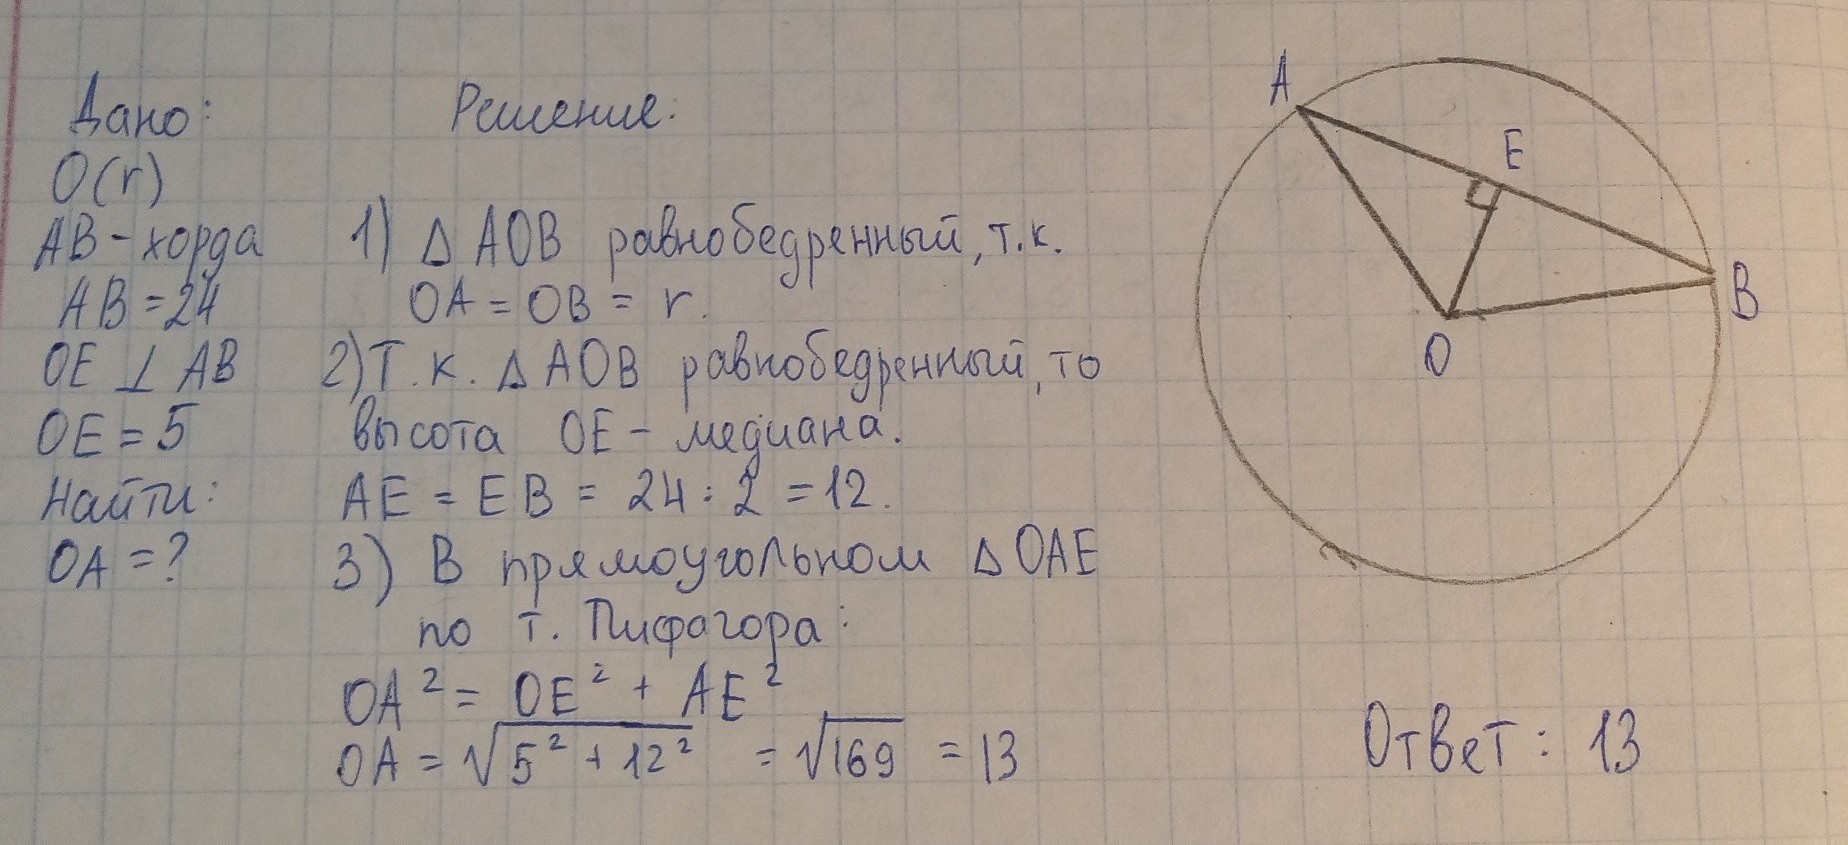 Дано:
O(r)
AB - хорда
AB = 24
OE ⊥ AB
OE = 5
Найти:
OA = ?
Решение:
1) Δ AOB равнобедренный, т.к.
OA = OB = r.
2) Т.к. Δ AOB равнобедренный, то
высота OE - медиана.
AE = EB = 24 : 2 = 12.
3) В прямоугольном Δ OAE
по т. Пифагора:
OA² = OE² + AE²
OA = √5² + 12² = √169 = 13
A
E
B
O
Ответ: 13